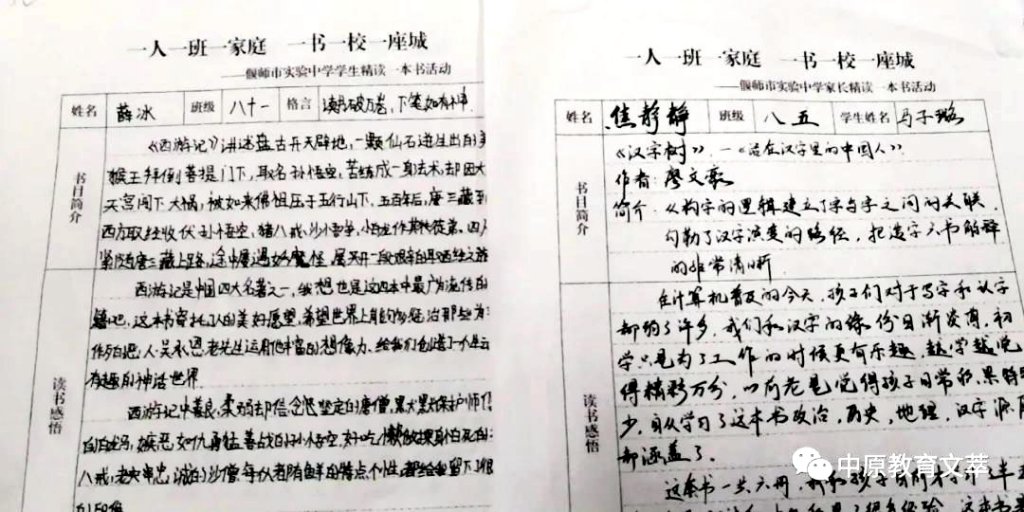 一人一班一家庭 一书一校一座城
——偃师市实验中学学生精读一本书活动
姓名 薛冰 班级 八十一 格言 读书破万卷，下笔如有神.
书目简介
《西游记》讲述盘古开天辟地，一颗仙石迸生出的美
猴王拜倒菩提门下，取名孙悟空，苦练成一身法术，却因大
天宫闯下大祸，被如来佛祖压于五行山下，五百年后，唐三藏到
西方取经收伏孙悟空，猪八戒，沙小悟净，小白龙作其徒弟，四人
紧随唐三藏上路，途中屡遇妖魔怪，展开一段艰辛的取西经之旅
读书感悟
西游记是中国四大名著之一，我想也是这四本中最广为流传的
吧，这本书寄托了人的美好愿望，希望世界上有
人.吴承恩老先生运用他丰富的想像力、给我们创造了一个
有趣的神话世界.
西游记中善良，柔弱却信念坚定的唐僧，
的白龙马，嫉恶如仇勇猛善战的孙悟空，好吃懒做
八戒，老实忠诚的沙僧，每个人都有鲜明的特点个性，都给我留下了很
的印象
一人一班一家庭 一书一校一座城
——偃师市实验中学家长精读一本书活动
姓名 焦静静 班级 八五 学生姓名 马子璐
书目简介
《汉字树》.—《活在汉字里的中国人》.
作者：廖文豪
简介：从构字的逻辑建立了字与字之间的关联，
勾勒了汉字演变的路径，把造字六书解释
的非常清晰.
读书感悟
在计算机普及的今天，孩子们对于写字和认字
都弱了许多，我们和汉字的缘份日渐发薄，初
学只是为了工作的时候更有乐趣，越学越觉
得精彩万分，以前老是觉得孩子日常积累特别
少，自从学习了这本书政治，历史，地理，汉字源
都涵盖了.
这套书一共六册，我和孩子
中原教育文萃